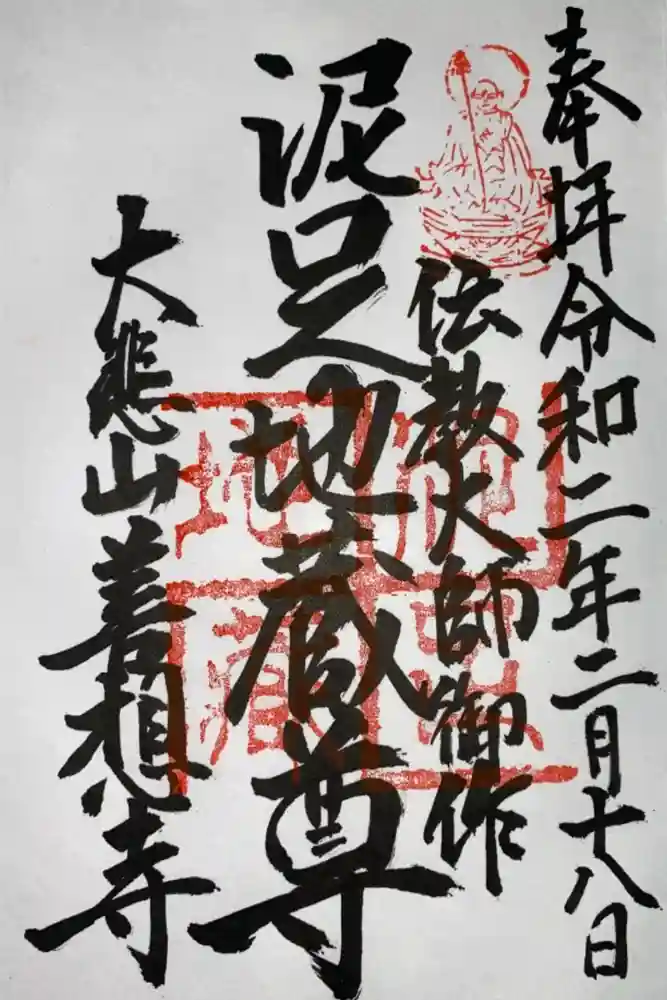 奉拝令和二年二月十八日
伝教大師御作
泥足地蔵尊
大悲山善想寺
泥足
地蔵